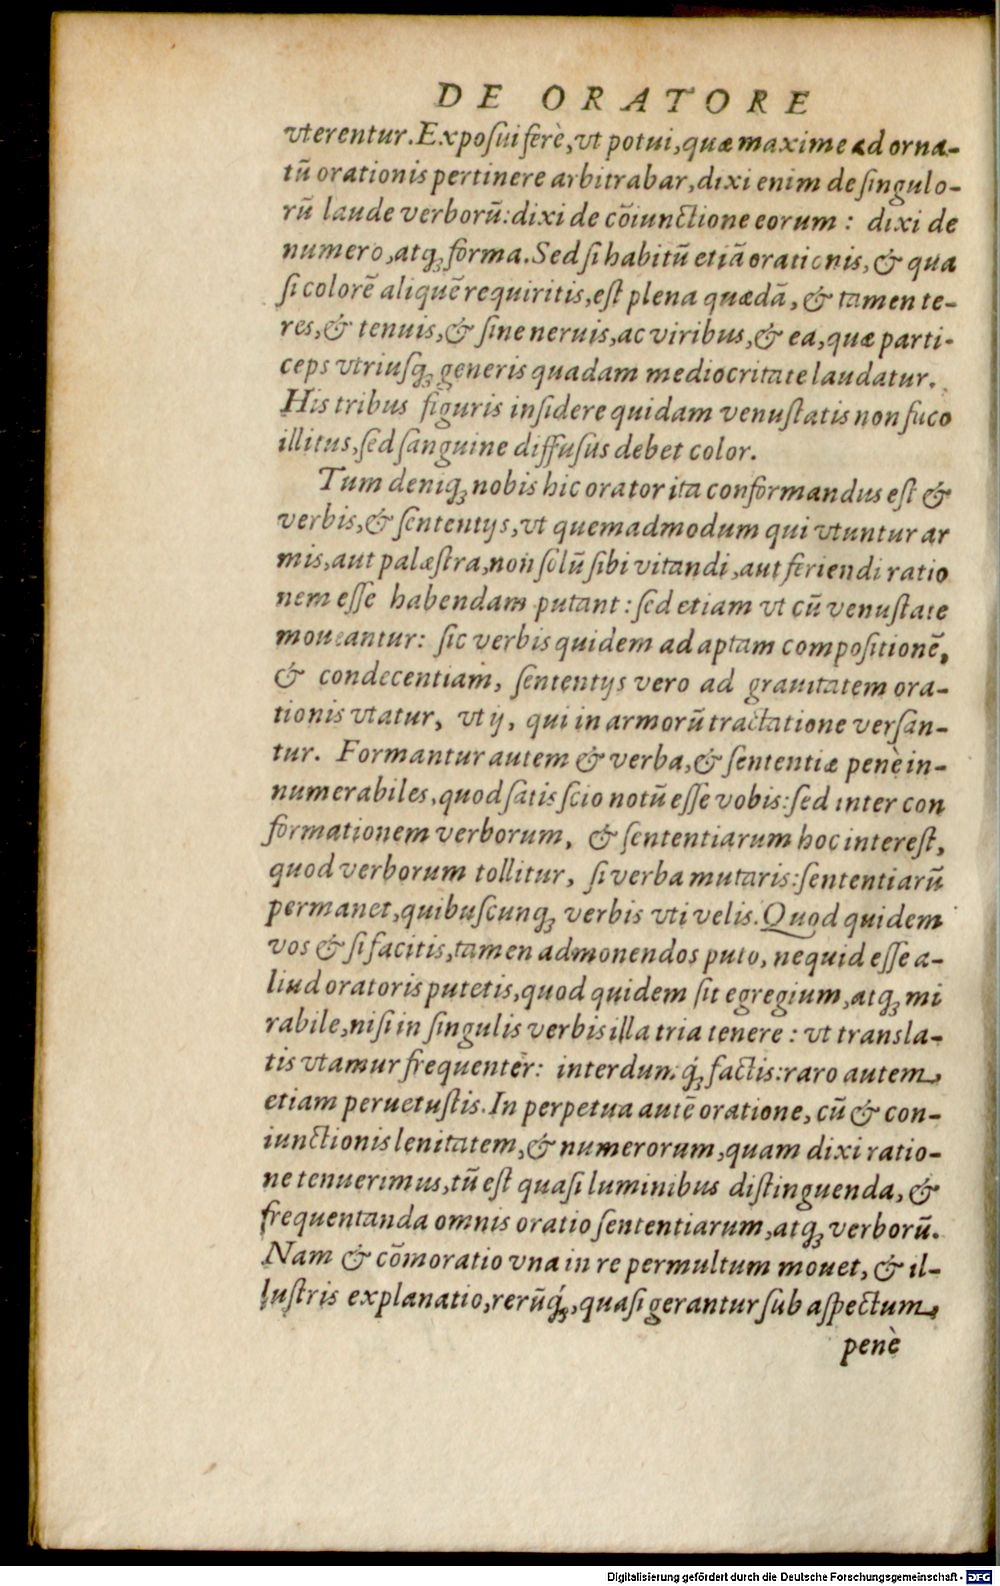 DE ORATORE
vterentur. Exposui ferè, vt potui, quæ maxime ad orna-
tũ orationis pertinere arbitrabar, dixi enim de singulo-
rũ laude verborũ: dixi de cõiunctione eorum: dixi de
numero, atq; forma. Sed si habitũ etiã orationis, & qua
si colorẽ aliquẽ requiritis, est plena quædã, & tamen te-
res, & tenuis, & sine neruis, ac viribus, & ea, quæ parti-
ceps vtriusq; generis quadam mediocritate laudatur.
His tribus figuris insidere quidam venustatis non fuco
illitus, sed sanguine diffusus debet color.
Tum deniq; nobis hic orator ita conformandus est &
verbis, & sententijs, vt quemadmodum qui vtuntur ar
mis, aut palæstra, non solũ sibi vitandi, aut feriendi ratio
nem esse habendam putant: sed etiam vt cũ venustate
moueantur: sic verbis quidem ad aptam compositionẽ,
& condecentiam, sententijs vero ad grauitatem ora-
tionis vtatur, vt ij, qui in armorũ tractatione versan-
tur. Formantur autem & verba, & sententiæ penè in-
numerabiles, quod satis scio notũ esse vobis: sed inter con
formationem verborum, & sententiarum hoc interest,
quod verborum tollitur, si verba mutaris: sententiarũ
permanet, quibuscunq; verbis vti velis. Quod quidem
vos & si facitis, tamen admonendos puto, ne quid esse a-
liud oratoris putetis, quod quidem sit egregium, atq; mi
rabile, nisi in singulis verbis illa tria tenere: vt transla-
tis vtamur frequenter: interdum q́; factis: raro autem
etiam peruetustis. In perpetua autẽ oratione, cũ & con-
iunctionis lenitatem, & numerorum, quam dixi ratio-
ne tenuerimus, tũ est quasi luminibus distinguenda, &
frequentanda omnis oratio sententiarum, atq; verborũ.
Nam & cõmoratio vna in re permultum mouet, & il-
lustris explanatio, rerũq́;, quasi gerantur sub aspectum
penè
Digitalisierung gefördert durch die Deutsche Forschungsgemeinschaft - DFG